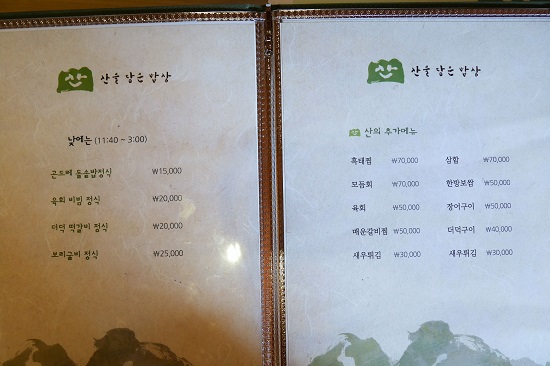 산 산을 담은 밥상
낮에는 (11:40 ~ 3:00)
곤드레 돌솥밥정식 ₩15,000
육회 비빔 정식 ₩20,000
더덕 떡갈비 정식 ₩20,000
보리굴비 정식 ₩25,000
산 산을 담은 밥상
산의 추가메뉴
흑태찜 ₩70,000 삼합 ₩70,000
모듬회 ₩70,000 한방보쌈 ₩50,000
육회 ₩50,000 장어구이 ₩50,000
매운갈비찜 ₩50,000 더덕구이 ₩40,000
새우튀김 ₩30,000 새우튀김 ₩30,000